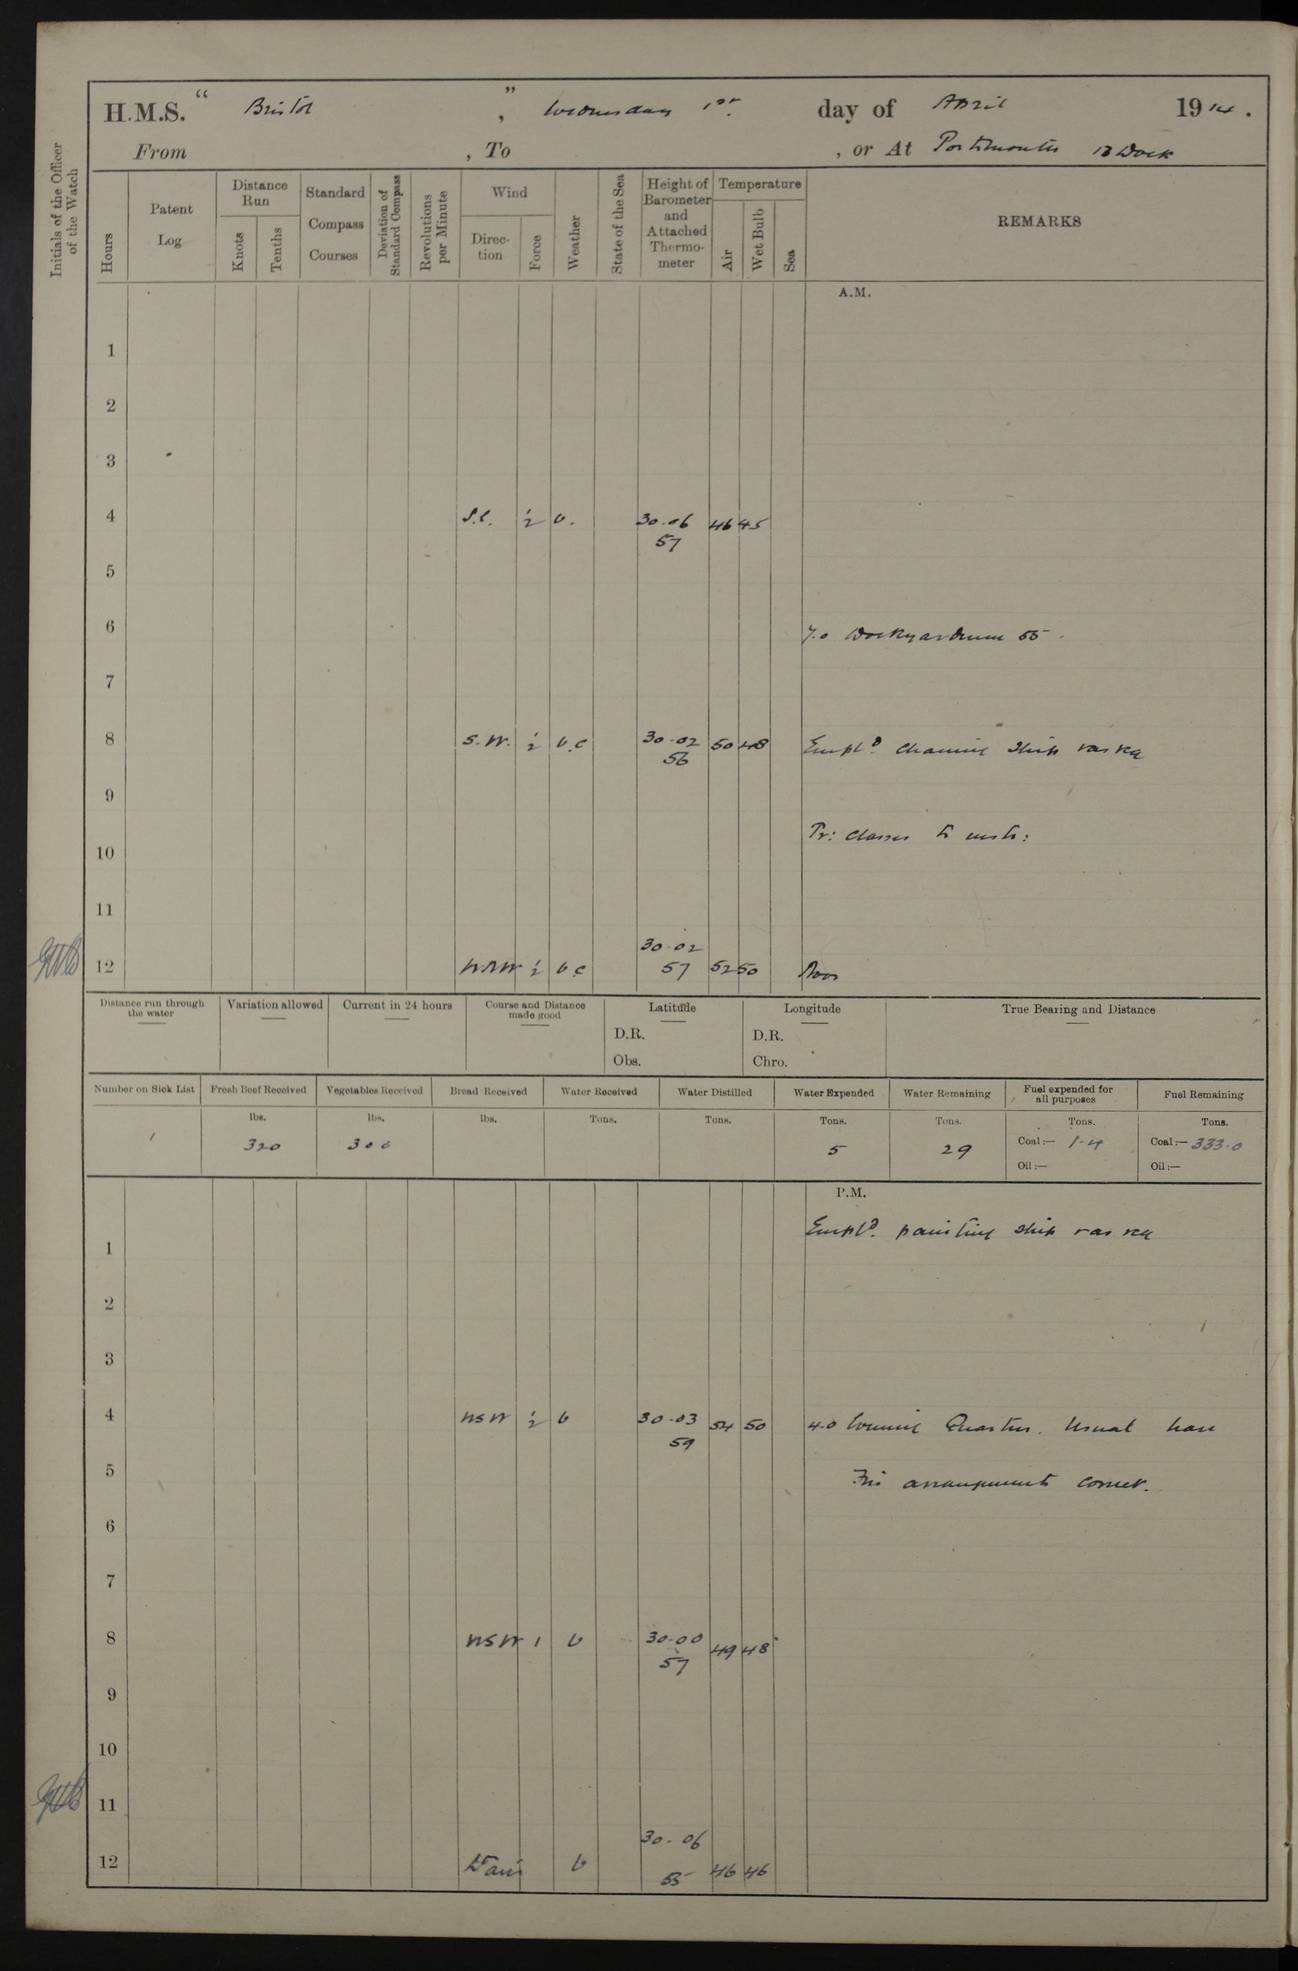 H.M.S. "Bristol", Wednesday 1st. day of April 1914.
From , To , or At Portsmouth 13 Dock
Initials of the Officer of the Watch
Hours Patent Log Distance Run Knots Tenths Standard Compass Courses Deviation of Standard Compass Revolutions per Minute Wind Direction Force Weather State of the Sea Height of Barometer and Attached Thermometer Temperature Air Wet Bulb Sea REMARKS
A.M.
1
2
3
4 S.E. ½ b. 30.06 46 45
57
5
6
7.0 Dockyardmen 55.
7
8 S.W. ½ b.c 30.02 50 48 Empld. cleaning ship
56
9
Tr: classes to instr:
10
11
30.02
12 WNW ½ b c 57 52 50
Distance run through the water Variation allowed Current in 24 hours Course and Distance made good Latitude Longitude True Bearing and Distance
D.R. D.R.
Obs. Chro.
Number on Sick List Fresh Beef Received Vegetables Received Bread Received Water Received Water Distilled Water Expended Water Remaining Fuel expended for all purposes Fuel Remaining
lbs. lbs. lbs. Tons. Tons. Tons. Tons. Tons. Tons.
1 320 300 5 29 Coal:— 1.4 Coal:— 333.0
Oil:— Oil:—
P.M.
Empld. painting ship
1
2
3
4 WSW ½ b 30.03 54 50 4.0 Evening Quarters. Usual
59
5 Fire arrangements correct.
6
7
8 WSW 1 b 30.00 49 48
57
9
10
11
30.06
12 Lt airs b 55 46 46